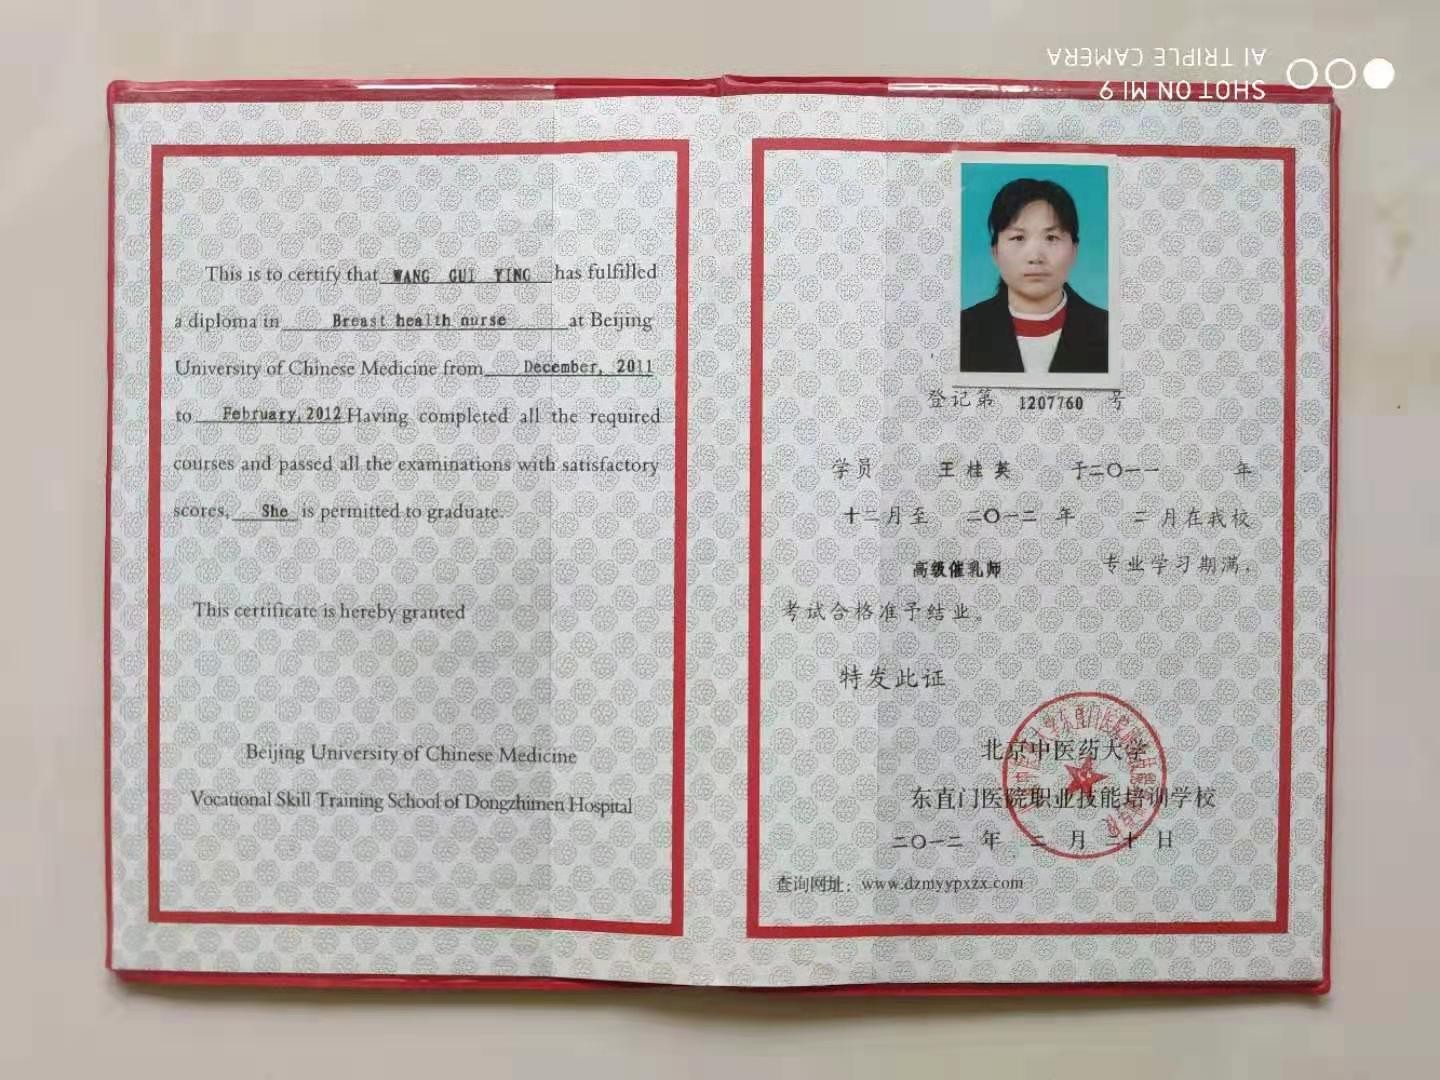 This is to certify that WANG GUI YING has fulfilled
a diploma in Breast health nurse at Beijing
University of Chinese Medicine from December, 2011
to February, 2012 Having completed all the required
courses and passed all the examinations with satisfactory
scores, She is permitted to graduate.
This certificate is hereby granted
Beijing University of Chinese Medicine
Vocational Skill Training School of Dongzhimen Hospital
登记第 1207760 号
学员 王桂英 于二〇一一 年
十二月至 二〇一二 年 二 月在我校
高级催乳师 专业学习期满,
考试合格准予结业。
特发此证
北京中医药大学
东直门医院职业技能培训学校
二〇一二 年 二 月 二十 日
查询网址：www.dzmyypxzx.com
SHOT ON MI 9
AI TRIPLE CAMERA